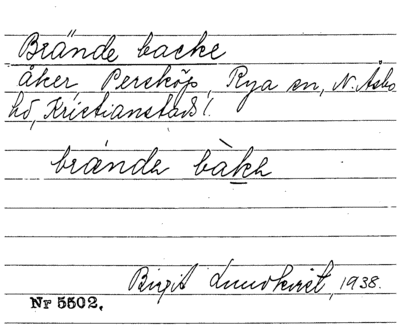 Brände backe
åker, Persköp, Rya sn, N. Åsbo
hd, Kristianstads l.
brände bàkə
Birgit Lundkvist, 1938.
Nr 5502.